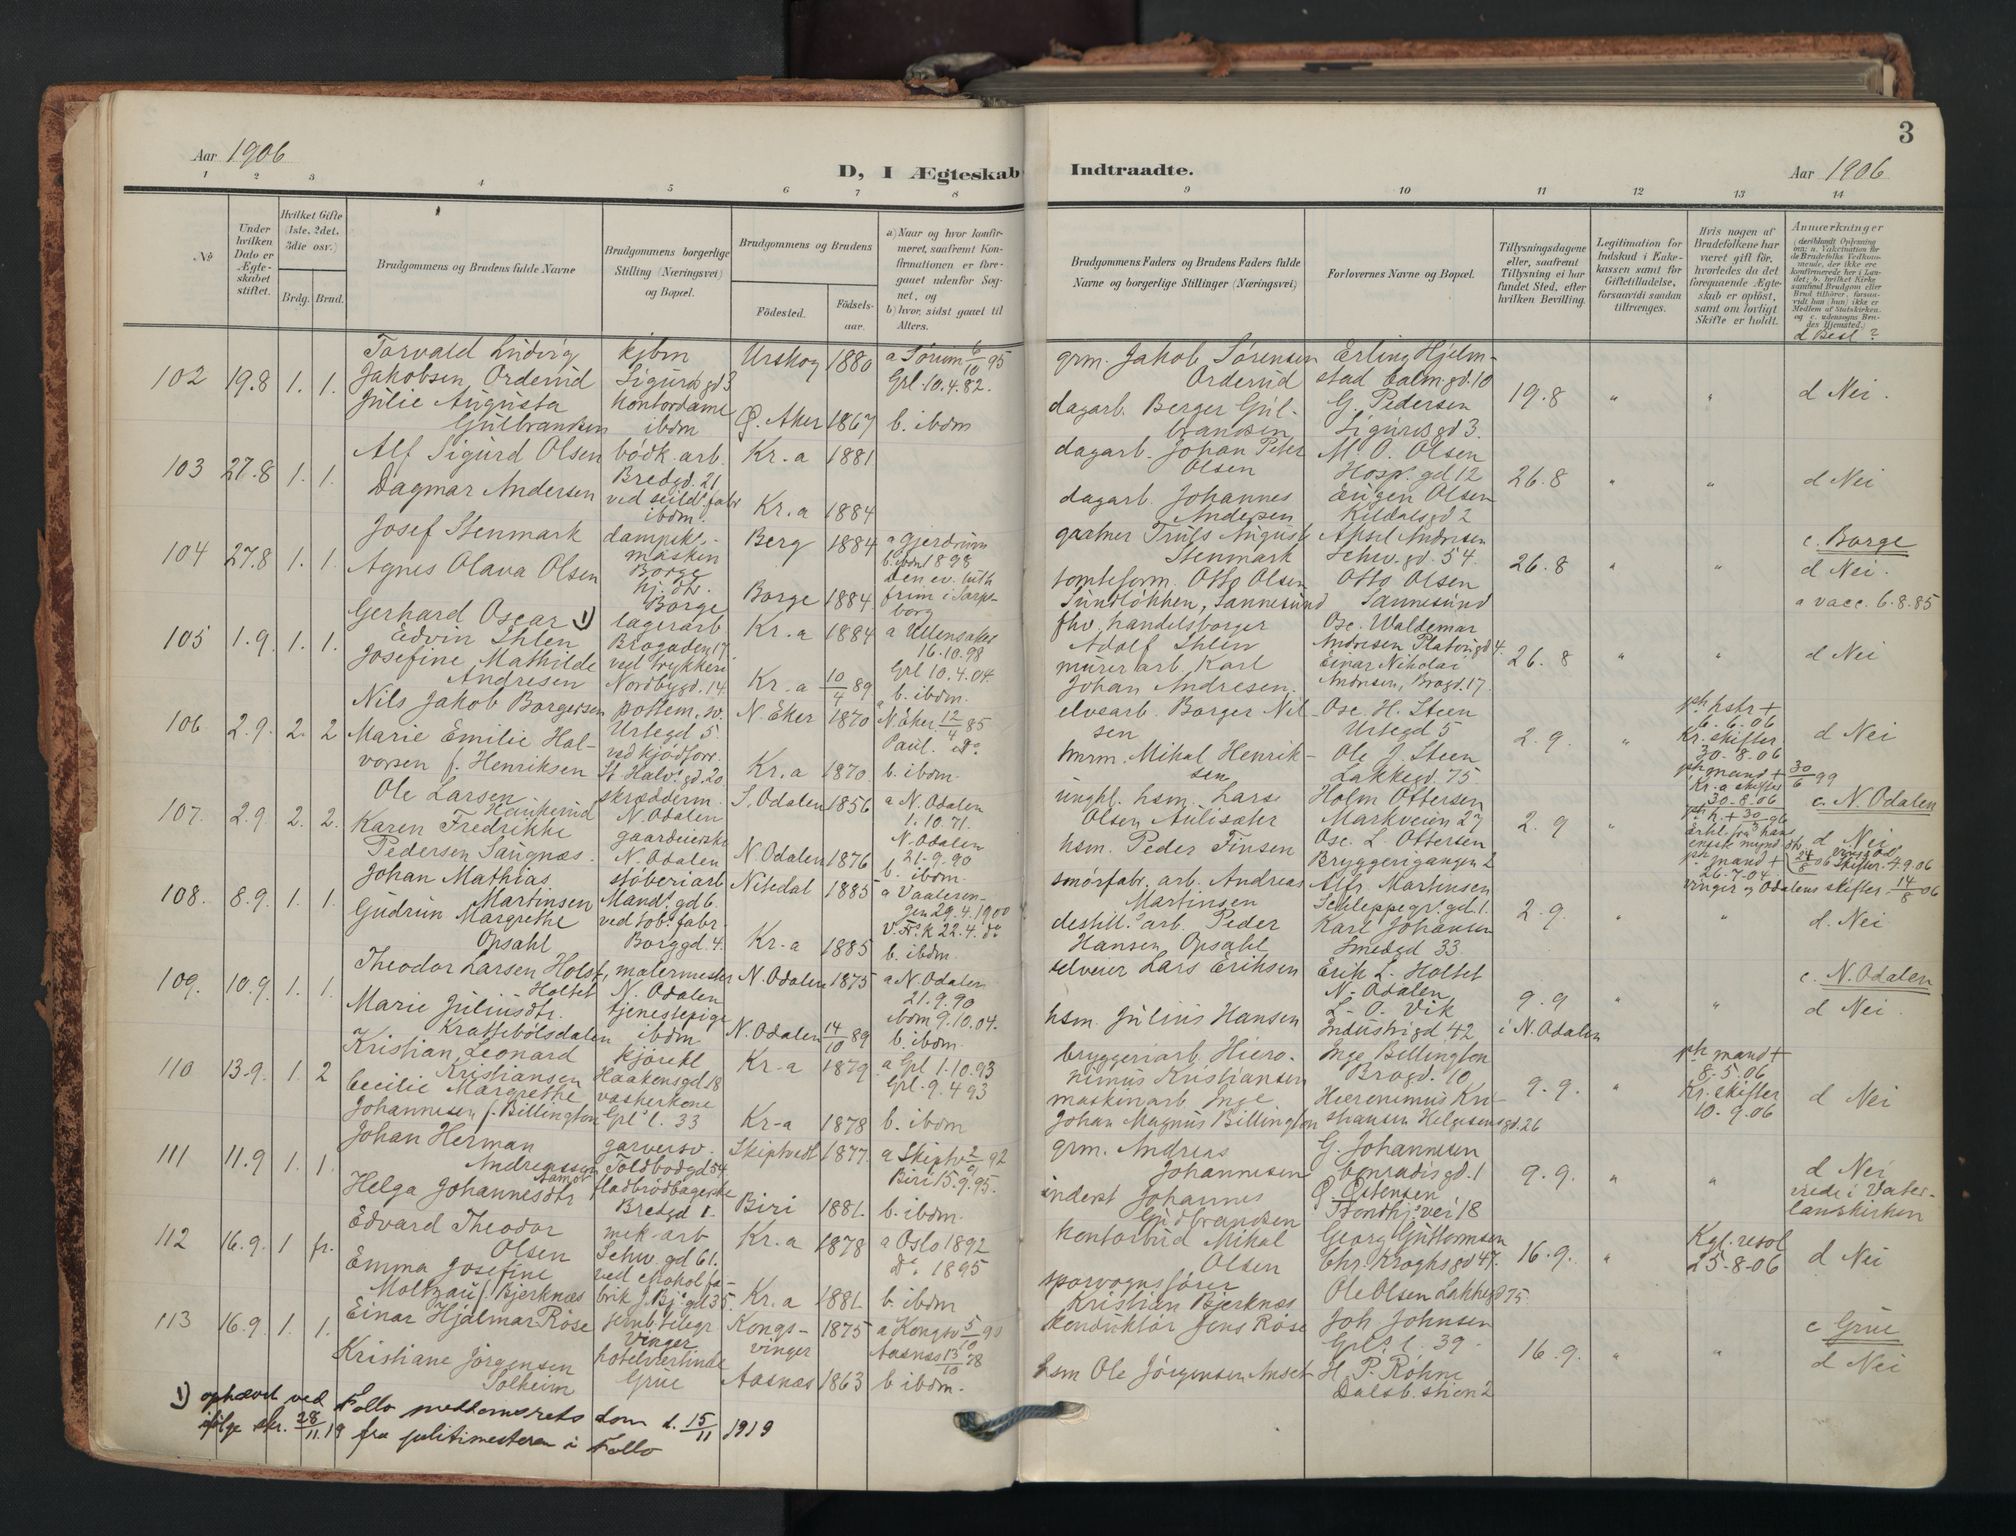 Aar 1906
D, I Ægteskab Indtraadte.
3
Aar 1906
1 2 3 4 5 6 7 8 9 10 11 12 13 14
No
Under hvilken Dato er Ægteskabet stiftet.
Hvilket Gifte (1ste, 2det, 3die osv.)
Brdg. Brud.
Brudgommens og Brudens fulde Navne
Brudgommens borgerlige Stilling (Næringsvei) og Bopæl.
Brudgommens og Brudens
Fødested.
Fødsels-aar.
a) Naar og hvor konfirmeret, saafremt Konfirmationen er foregaaet udenfor Sognet, og
b) hvor, sidst gaaet til Alters.
Brudgommens Faders og Brudens Faders fulde Navne og borgerlige Stillinger (Næringsvei)
Forlovernes Navne og Bopæl.
Tillysningsdagene eller, saafremt Tillysning ei har fundet Sted, efter hvilken Bevilling.
Legitimation for Indskud i Enkekassen samt for Giftetilladelse, forsaavidt saadan tiltrænges.
Hvis nogen af Brudefolkene har været gift før, hvorledes da det foregaaende Ægteskab er opløst, samt om lovligt Skifte er holdt.
Anmærkninger
d Besl?
102 19.8 1. 1.
Torvald Ludvig
Jakobsen Orderud
Julie Augusta
Gulbrandsen
kjbm
Sigurdsgd 3
kontordame
ibdm
Urskog 1880
Ø. Aker 1867
a Sørum 6/10 95
Grl. 10.4.82.
b. ibdm
grm. Jakob Sørensen
Orderud
dagarb. Berger Gul-
brandsen
Erling Hjelm-
stad Calm.gd. 10
G. Pedersen
Sigurdsgd 3.
19.8 " "
d Nei.
103 27.8 1. 1.
Alf Sigurd Olsen
Dagmar Andersen
bødk. arb.
Bredgd. 21
ved seilds.fabr
ibdm.
Kr.a 1881
Kr.a 1884
dagarb. Johan Peter
Olsen
dagarb. Johannes
Andersen
M. O. Olsen
Hosp.gd 12
Eugen Olsen
Kildalsgd 2
26.8 " "
d Nei
104 27.8 1. 1.
Josef Stenmark
Agnes Olava Olsen
dampsk.-
maskin
Borge
Borge
Berg 1884
Borge 1884
a Gjerdrum
b. ibdm 1898
Den ev. luth
frim i Sarps-
borg
gartner Truls August
Stenmark
tomteform. Otto Olsen
Sundløkken, Sannesund
Aksel Andresen
Schw.gd. 54.
Otto Olsen
Sannesund
26.8 " "
c. Borge
d Nei.
a vacc. 6.8.85
105 1.9. 1. 1.
Gerhard Oscar 1)
Edvin Ihlen
Josefine Mathilde
Andresen
lagerarb
Brogaden 17
ved trykkeri
Nordbygd. 14.
Kr.a 1884
Kr.a 10/4 89
a Ullensaker
16.10.98
Grl 10.4.04.
b. ibdm.
fhv. handelsborger
Adolf Ihlen
murerarb. Karl
Johan Andresen.
Osc. Waldemar
Andresen Platousgd 4.
Einar Nikolai
Andresen, Brogd. 17.
26.8 " "
d Nei
106 2.9. 2. 2
Nils Jakob Borgersen
Marie Emilie Hal-
vorsen f. Henriksen
pottem. sv.
Urtegd 5.
ved kjødforr.
St. Halv.gd. 20
N. Eker 1870
Kr.a 1870.
a N. Eker 12/4 85
Paul. do
b. ibdm.
elvearb. Borger Nil-
sen
hmrm. Mikal Henrik-
sen
Osc. H. Steen
Urtegd 5
Ole J. Steen
Lakkegd. 75
2.9. "
ph hstr +
6.6.06
Kr. skifter
30-8.06
ph mand + 30/6 99
Kr.a skifter
30.8.06
d Nei
107. 2.9. 2. 2.
Ole Larsen
Haukerud
Karen Fredrikke
Pedersen Saugnæs.
skrædderm.
N. Odalen
gaardeierske
N. Odalen
S. Odalen 1856
N. Odalen 1876
a N. Odalen
1.10.71.
N. Odalen
21.9.90
b. ibdm
ungkl. hsm. Lars
Olsen Aulisæter
hsm. Peder Finsen
Holm Ottersen
Markveien 27
Osc. L. Ottersen
Bryggerigangen 2
2.9 "
ph mand +
26.7.04
Vinger og Odalens skifter 14/8 06
c. N. Odalen
d Nei
108. 8.9. 1. 1.
Johan Mathias
Martinsen
Gudrun Margrethe
Opsahl
støberiarb
Mands.gd 6.
ved tob. fabr.
Borggd. 4.
Nitedal 1885
Kr.a 1885
a Vaaleren-
gen 29.4.1900
V. Fr.k 22.4. do
b. ibdm.
smörfabr. arb. Andreas
Martinsen
destill. arb. Peder
Hansen Opsahl
Alfr. Martinsen
Schleppegr.gd. 1.
Karl Johansen
Smedgd 33
2.9. " "
d. Nei
109. 10.9. 1. 1.
Theodor Larsen Holst,
Holtet
Marie Juliusdtr.
Krattebølsdalen
malermester
N. Odalen
tjenestepige
ibdm
N. Odalen 1875
N. Odalen 14/10 89
a N. Odalen
21.9.90
ibdm 9.10.04.
b. ibdm
selveier Lars Eriksen
hsm. Julius Hansen
Erik L. Holtet
N. Odalen
L. O. Vik
Industrigd 42
9.9
i N. Odalen " "
c. N. Odalen
d Nei.
110 13.9. 1. 2
Kristian Leonard
Kristiansen
Cecilie Margrethe
Johannesen f. Billington
kjørekl
Haakonsgd 18
vaskerkone
Grl. l. 33
Kr.a 1879
Kr-a 1878
a Grl 1.10.93
Grl. 9.4 93
b. ibdm.
bryggeriarb. Hiero-
nimus Kristiansen
maskinarb Inge
Johan Magnus Billington
Inge Billington
Brogd. 10
Hieronimus Kri-
stiansen Helgesensgd. 26
9.9. "
ph mand +
8.5.06
Kr. skifter
10.9.06
d Nei
111 11.9 1. 1.
Johan Herman
Andreassen
Aamot
Helga Johannesdtr
garversv.
Toldbodgd 54
fladbrødbagerske
Bredgd 1.
Skiptvedt 1877.
Biri 1881.
a Skiptv 2/9 92
Biri 15.9.95.
b. ibdm.
grm. Andreas
Johannesen
inderst Johannes
Gudbrandsen
G. Johannesen
Conradisgd. 1
O. Østensen
Trondhj.vei 18
9.9. " "
d Nei
viede i Vater-
landskirken
112 16.9. 1 fr.
Edvard Theodor
Olsen
Emma Josefine
Moltzau f. Bjerknæs
mek. arb
Schw gd 61.
ved chokol.fa-
brik J. Bj. gd 35.
Kr.a 1878
Kr.a 1881.
a Oslo 1892
Do 1895
b. ibdm
kontorbud Mikal
Olsen
sporvognsfører
Kristian Bjerknæs
Georg Guttormsen
Chr. Kroghsgd 47.
Ole Olsen Lakkegd 75.
16.9. "
Kgl. resol
25-8-06
d Nei
113 16.9. 1. 1.
Einar Hjalmar Röse
Kristiane Jørgensen
Solheim
jernb. telegr
Vinger
hotelværtinde
Grue
Kongs-
vinger 1875
Aasnæs 1863
a Kongsv 5/10 90
Aasnæs 13/10 78
b ibdm.
konduktør Jens Röse
hsm Ole Jørgensen Anset
Joh Johnsen
Grl. l. 39.
H. P. Rohne
Dalsb. stien 2
16.9. " "
c Grue
d Nei
1) ophævet ved Follo meddomsrets dom d. 15/11 1919
ifølge skr. 28/11.19 fra politimesteren i Follo